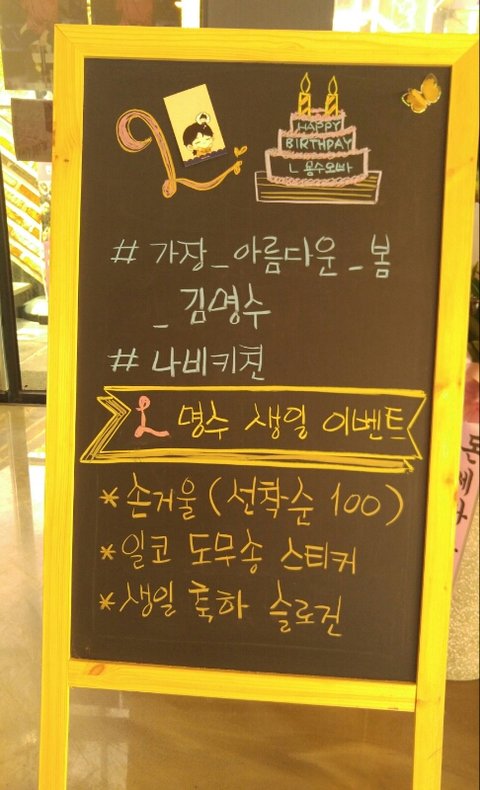 L
HAPPY
BIRTHDAY
L 몽수오빠
# 가장_아름다운_봄
_김명수
# 나비키친
L 명수 생일 이벤트
*손거울(선착순 100)
*일코 도무송 스티커
*생일 축하 슬로건